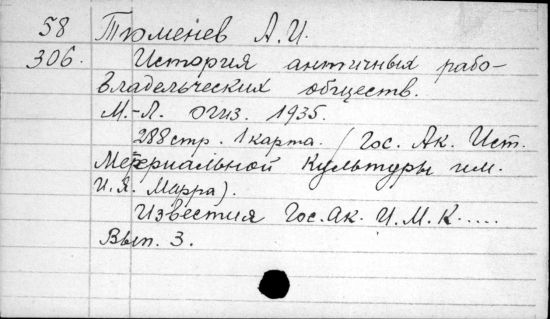 58 Тюменев А.И.
306. История античных рабо-
владельческих обществ.
М.-Л. ОГИЗ. 1935.
288 стр. 1 карта. (Гос. Ак. Ист.
Материальной Культуры им.
И.Я. Марра).
Известия Гос. Ак. И.М.К.....
Вып. 3.